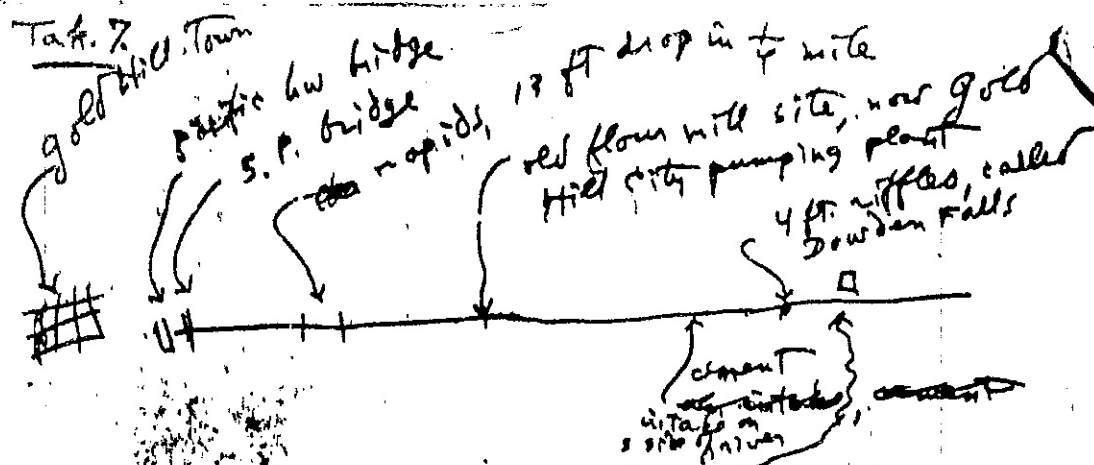 Tak. 7.
Gold Hill Town
Pacific hw bridge
S. P. bridge
rapids, 13 ft drop in 1/4 mile
old flour mill site, now Gold
Hill city pumping plant
4 ft. riffles, called
Dowden Falls
cement
intake on
s side of river